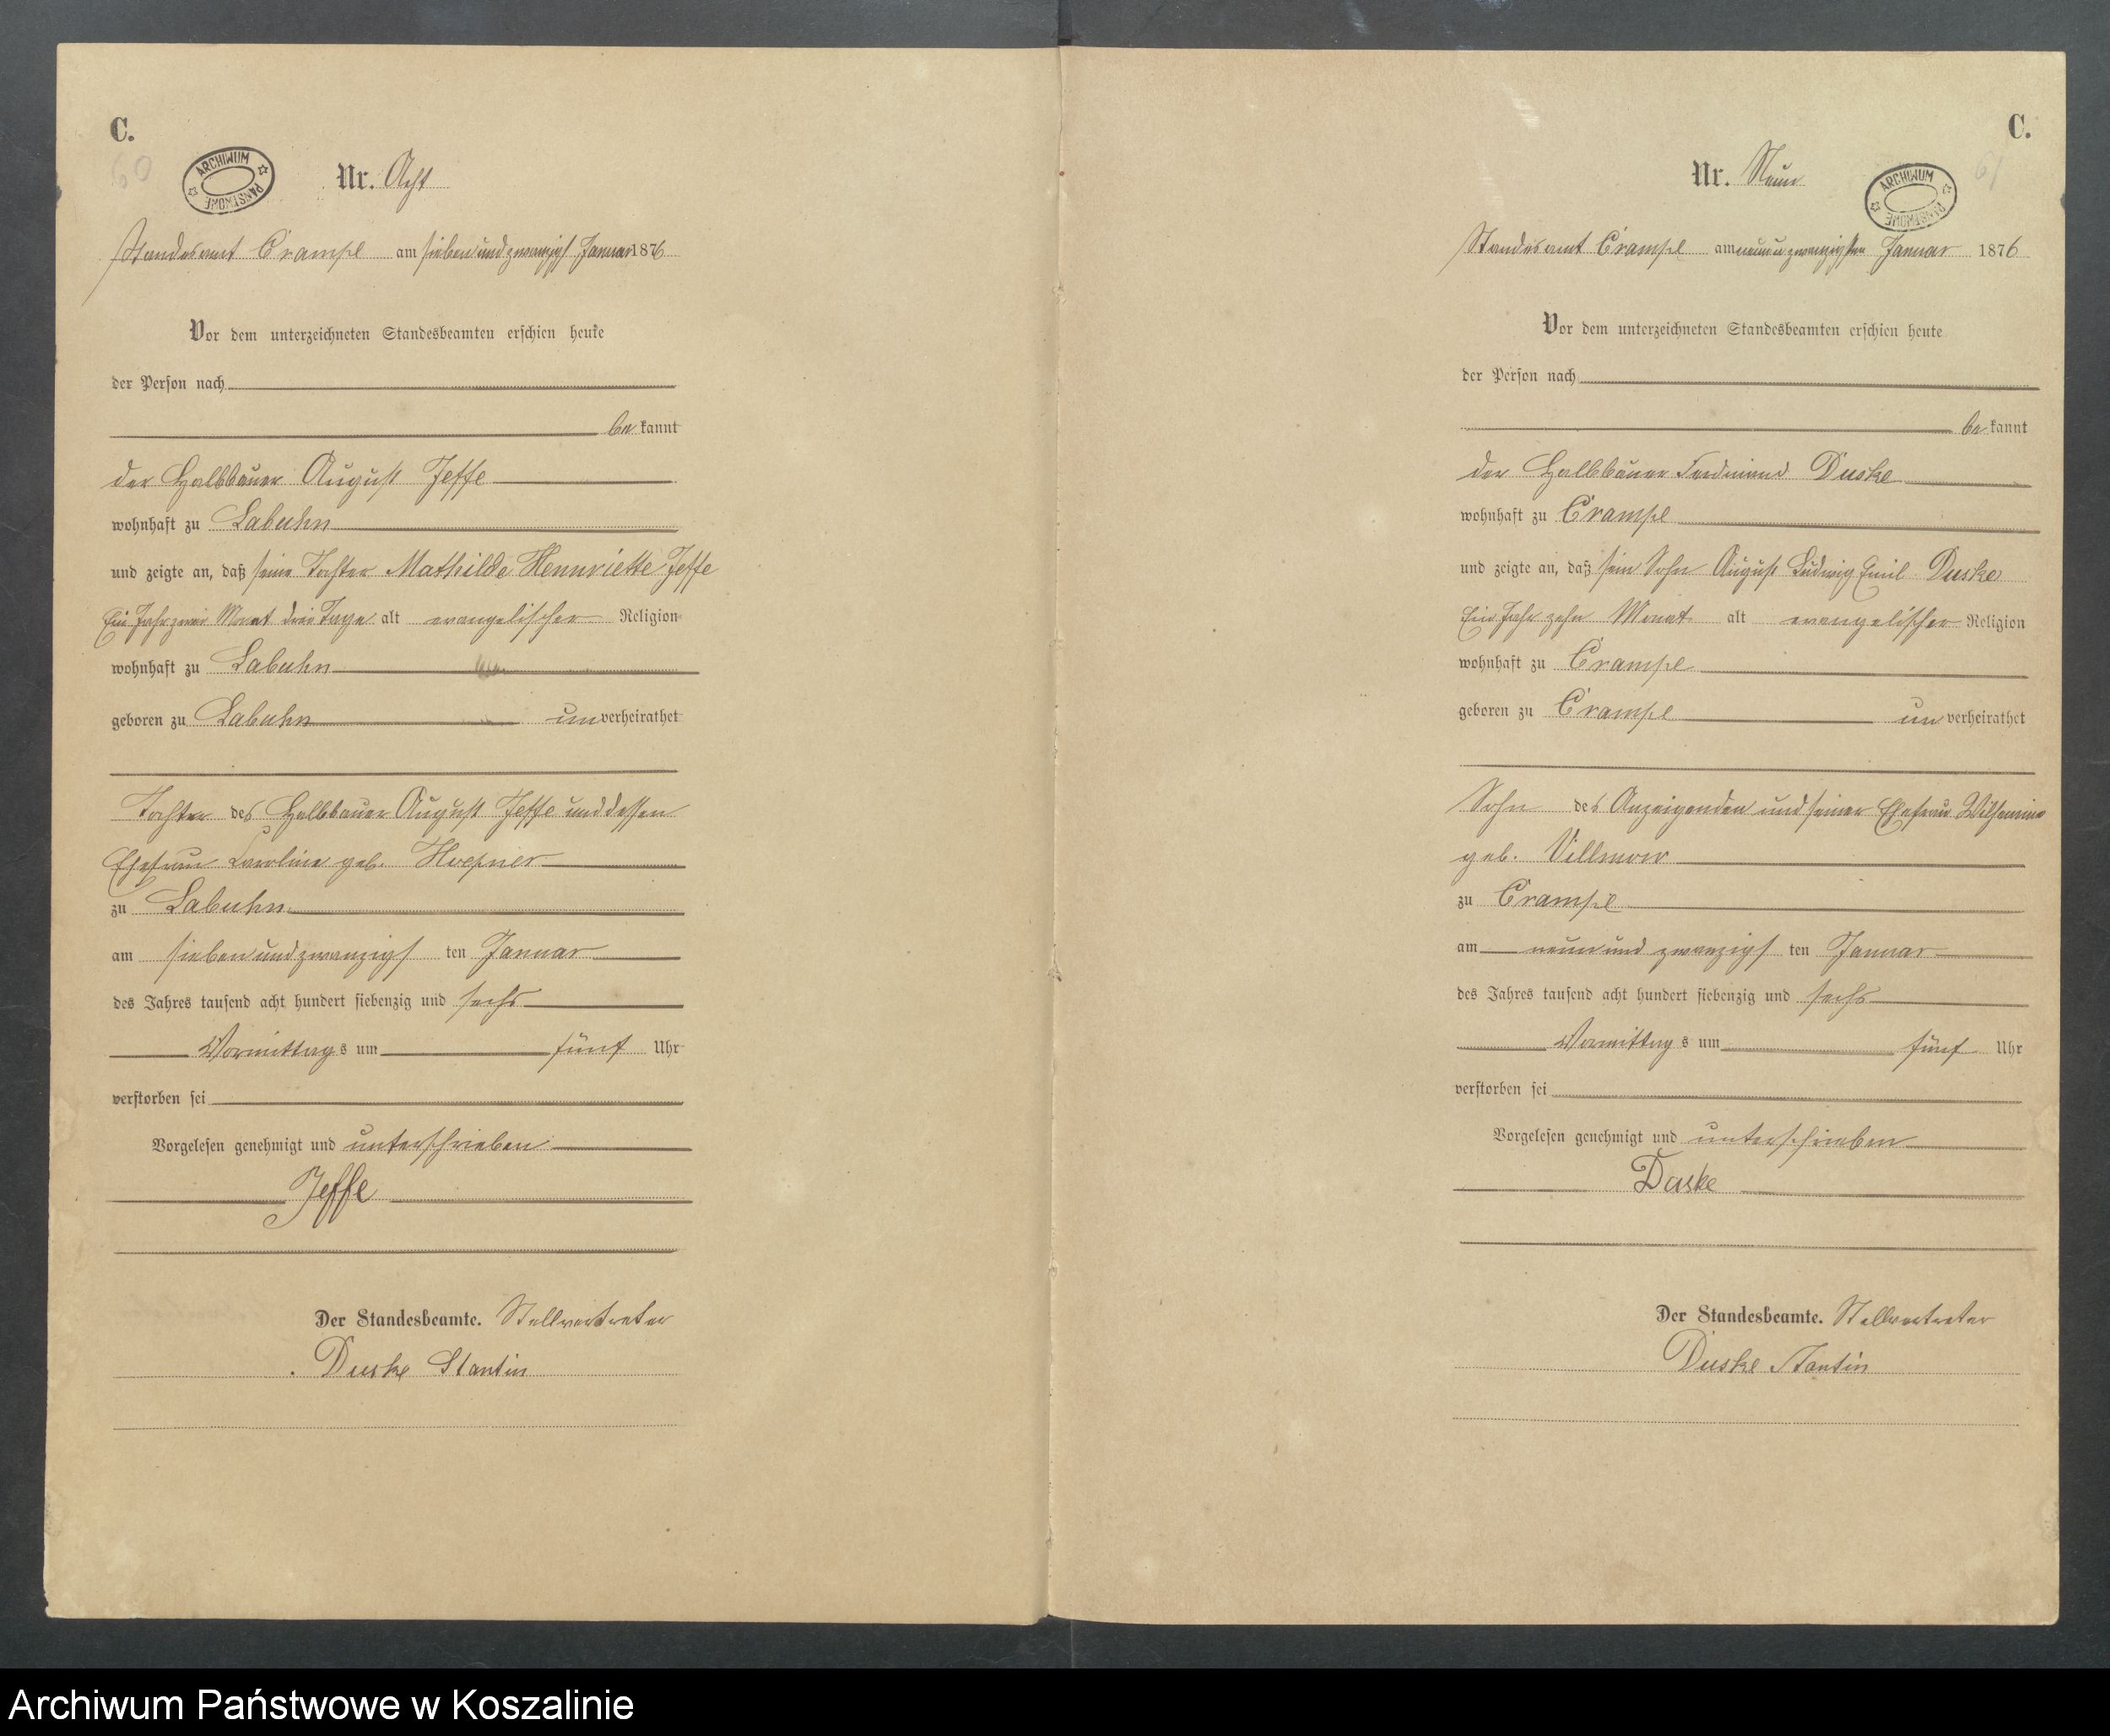 C.
60
ARCHIWUM PAŃSTWOWE
Nr. Acht
Standesamt Crampe am siebenundzwanzigst Januar 1876
Vor dem unterzeichneten Standesbeamten erschien heute
der Person nach
be kannt
der Halbbauer August Jeffe
wohnhaft zu Labuhn
und zeigte an, daß seine Tochter Mathilde Hennriette Jeffe
Ein Jahr zwei Monat drei Tage alt evangelischer Religion
wohnhaft zu Labuhn
geboren zu Labuhn un verheirathet
Tochter des Halbbauer August Jeffe und dessen
Ehefrau Caroline geb. Hoepner
zu Labuhn
am siebenundzwanzigs ten Januar
des Jahres tausend acht hundert siebenzig und sechs
Vormittag s um fünf Uhr
verstorben sei
Vorgelesen genehmigt und unterschrieben
Jeffe
Der Standesbeamte. Stellvertreter
Duske Stantin
C.
61
ARCHIWUM PAŃSTWOWE
Nr. Neun
Standesamt Crampe am neun u zwanzigsten Januar 1876
Vor dem unterzeichneten Standesbeamten erschien heute
der Person nach
be kannt
der Halbbauer Ferdinand Duske
wohnhaft zu Crampe
und zeigte an, daß sein Sohn August Ludwig Emil Duske
Ein Jahr zehn Monat alt evangelischer Religion
wohnhaft zu Crampe
geboren zu Crampe un verheirathet
Sohn des Anzeigenden und seiner Ehefrau Wilhemine
geb. Villmow
zu Crampe
am neunundzwanzigs ten Januar
des Jahres tausend acht hundert siebenzig und sechs
Vormittag s um fünf Uhr
verstorben sei
Vorgelesen genehmigt und unterschrieben
Duske
Der Standesbeamte. Stellvertreter
Duske Stantin
Archiwum Państwowe w Koszalinie